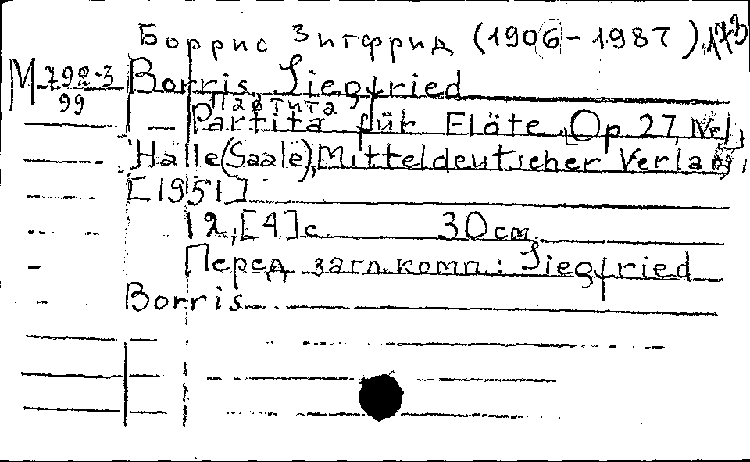 Боррис Зигфрид (1906-1987), 173
М 792-3
99
Borris, Siegfried
Партита
Partita für Fläte. Op. 27 №1
Halle (Saale), Mitteldeutscher Verlag,
[1951]
12, [4] с. 30 см.
Перед загл. комп.: Siegfried
Borris.